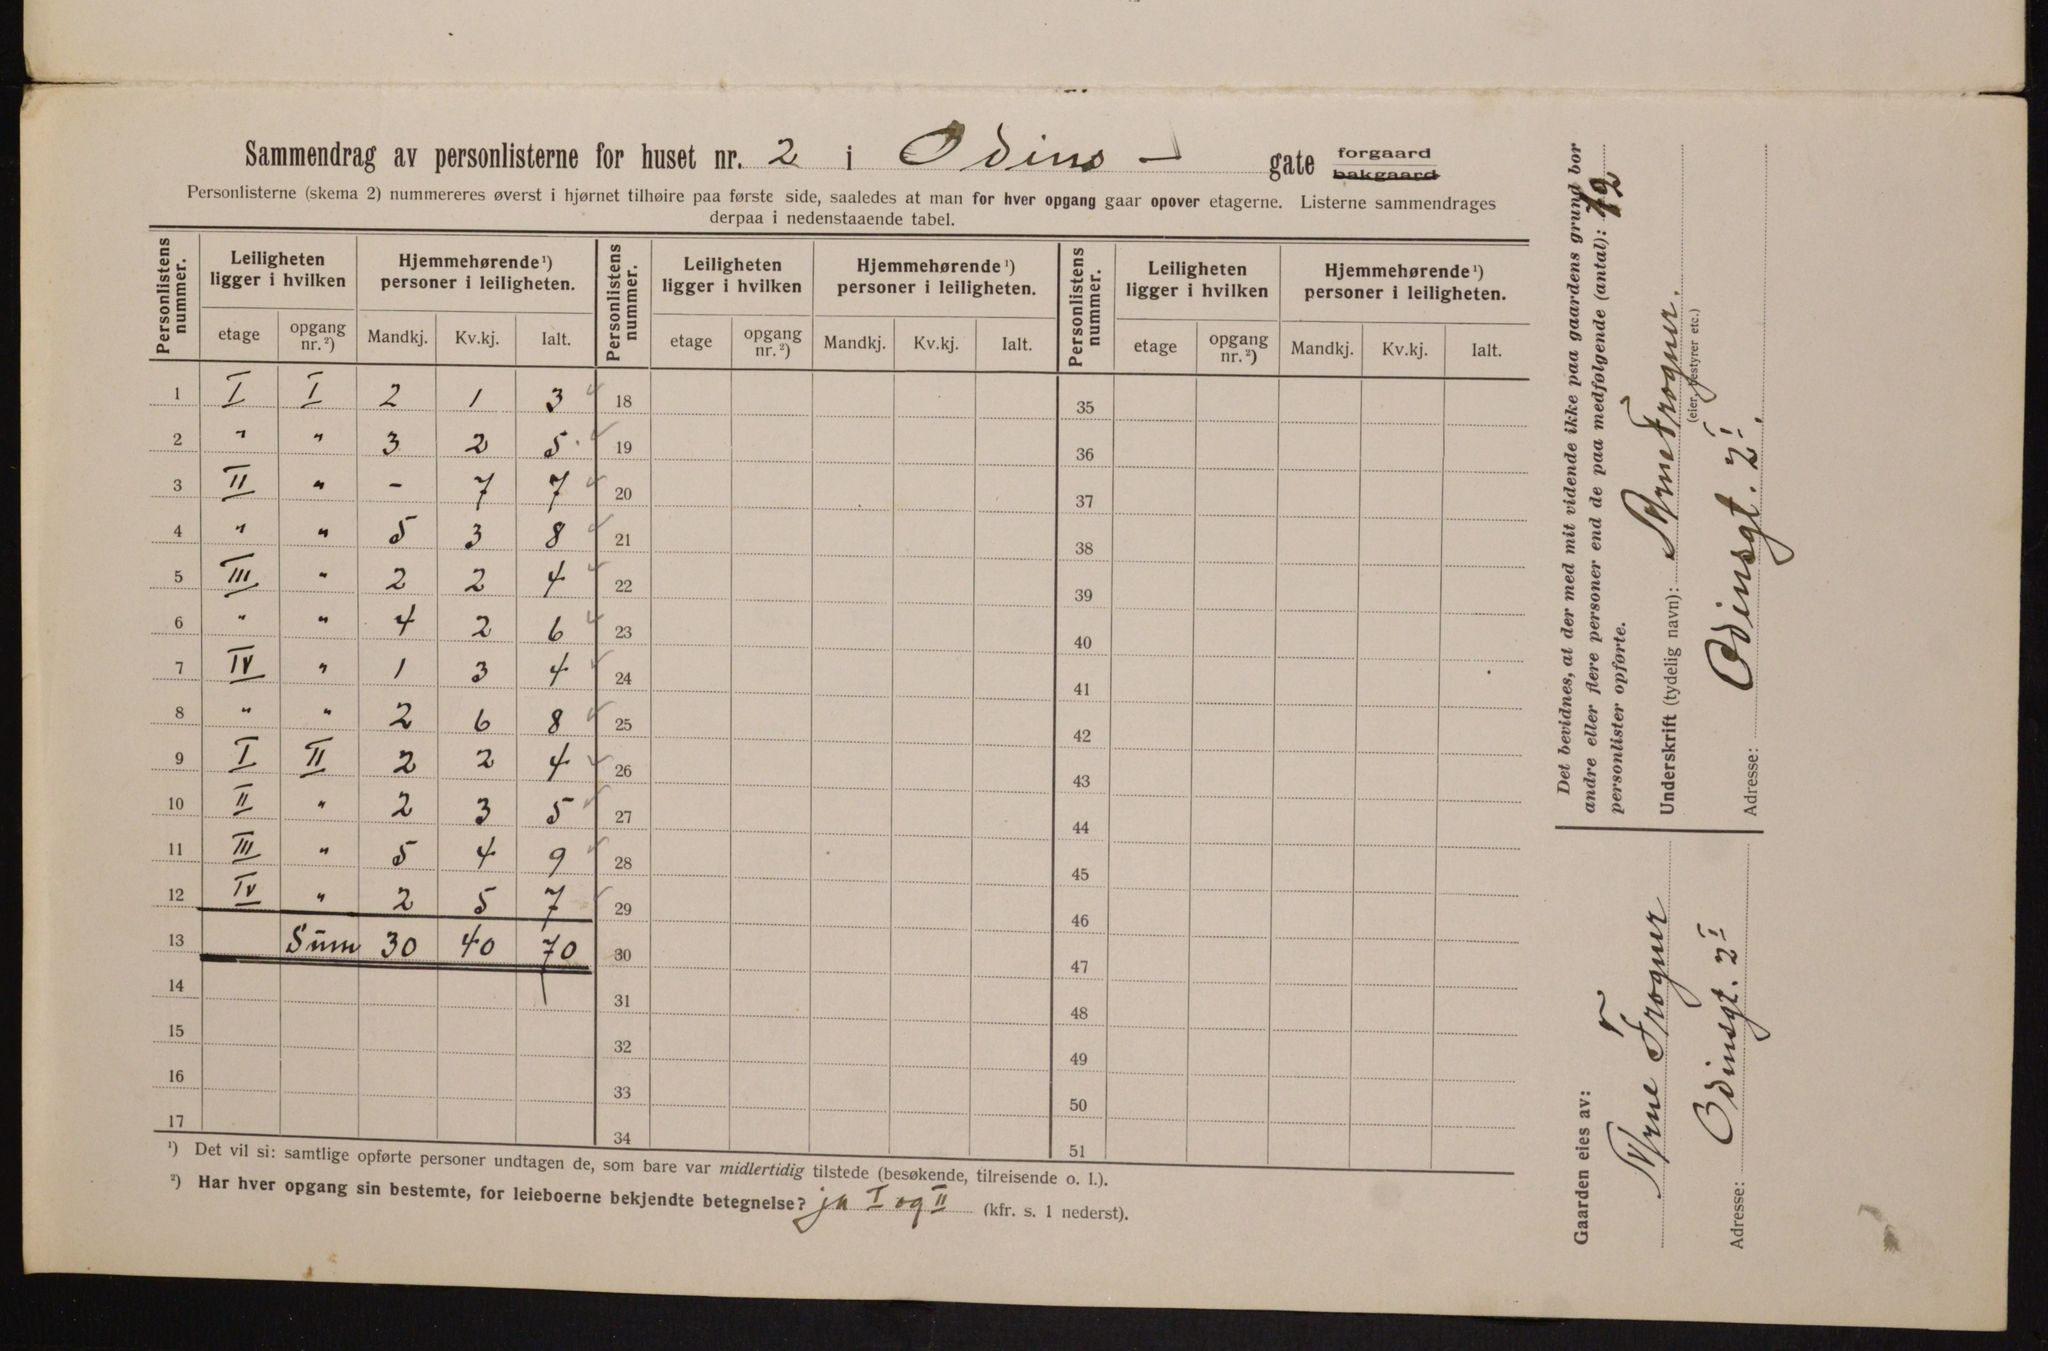 Sammendrag av personlisterne for huset nr. 2 i Odins - gate forgaard bakgaard
Personlisterne (skema 2) nummereres øverst i hjørnet tilhøire paa første side, saaledes at man for hver opgang gaar opover etagerne. Listerne sammendrages
derpaa i nedenstaaende tabel.
Personlistens nummer. Leiligheten ligger i hvilken Hjemmehørende ¹) personer i leiligheten. Personlistens nummer. Leiligheten ligger i hvilken Hjemmehørende ¹) personer i leiligheten. Personlistens nummer. Leiligheten ligger i hvilken Hjemmehørende ¹) personer i leiligheten.
etage opgang nr. ²) Mandkj. Kv.kj. Ialt. etage opgang nr. ²) Mandkj. Kv.kj. Ialt. etage opgang nr. ²) Mandkj. Kv.kj. Ialt.
1 I I 2 1 3 18 35
2 " " 3 2 5 19 36
3 II " - 7 7 20 37
4 " " 5 3 8 21 38
5 III " 2 2 4 22 39
6 " " 4 2 6 23 40
7 IV " 1 3 4 24 41
8 " " 2 6 8 25 42
9 I II 2 2 4 26 43
10 II " 2 3 5 27 44
11 III " 5 4 9 28 45
12 IV " 2 5 7 29 46
13 Sum 30 40 70 30 47
14 31 48
15 32 49
16 33 50
17 34 51
¹) Det vil si: samtlige opførte personer undtagen de, som bare var midlertidig tilstede (besøkende, tilreisende o. l.).
²) Har hver opgang sin bestemte, for leieboerne bekjendte betegnelse? ja I og II (kfr. s. 1 nederst).
Det bevidnes, at der med mit vidende ikke paa gaardens grund bor
andre eller flere personer end de paa medfølgende (antal): 12
personlister opførte.
Underskrift (tydelig navn): Arne Frogner.
(eier, bestyrer etc.)
Adresse: Odinsgt. 2 I.
Gaarden eies av:
Arne Frogner
Adresse: Odinsgt. 2 I